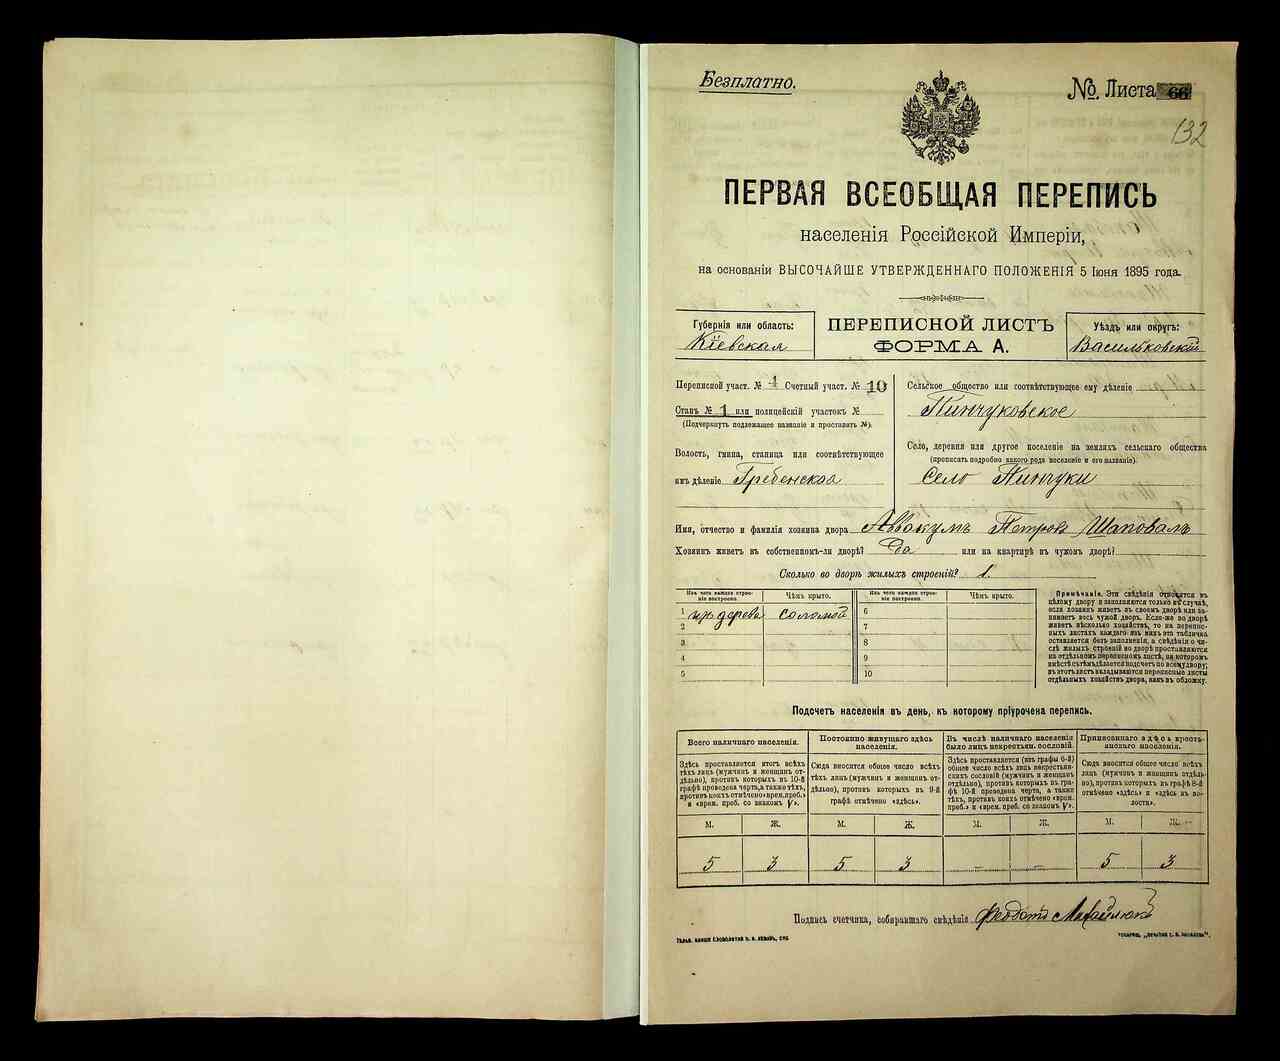 Безплатно.
№. Листа 66
132
ПЕРВАЯ ВСЕОБЩАЯ ПЕРЕПИСЬ
населенія Россійской Имперіи,
на основаніи ВЫСОЧАЙШЕ УТВЕРЖДЕННАГО ПОЛОЖЕНІЯ 5 Іюня 1895 года.
Губернія или область:
Кіевская
ПЕРЕПИСНОЙ ЛИСТЪ
ФОРМА А.
Уѣздъ или округъ:
Васильковскій
Переписной участ. № 4 Счетный участ. № 10
Станъ № 1 или полицейскій участокъ №
(Подчеркнуть подлежащее названіе и проставить №).
Волость, гмина, станица или соотвѣтствующее
имъ дѣленіе Гребенская
Сельское общество или соотвѣтствующее ему дѣленіе
Пинчуковское
Село, деревня или другое поселеніе на земляхъ сельскаго общества
(прописать подробно какого рода поселеніе и его названіе).
Село Пинчуки
Имя, отчество и фамилія хозяина двора Аввакумъ Петровъ Шаповалъ
Хозяинъ живетъ въ собственномъ-ли дворѣ? Да или на квартирѣ въ чужомъ дворѣ?
Сколько во дворѣ жилыхъ строеній? 1.
Изъ чего каждое строеніе построено.
Чѣмъ крыто.
Изъ чего каждое строеніе построено.
Чѣмъ крыто.
1 изъ дерева соломой 6
2 7
3 8
4 9
5 10
Примѣчаніе. Эти свѣдѣнія относятся къ
цѣлому двору и заполняются только въ случаѣ,
если хозяинъ живетъ въ своемъ дворѣ или занимаетъ
весь чужой дворъ. Если-же во дворѣ
живетъ нѣсколько хозяйствъ, то на переписныхъ
листахъ каждаго изъ нихъ эта табличка
оставляется безъ заполненія, а свѣдѣнія о числѣ
жилыхъ строеній во дворѣ проставляются
на отдѣльномъ переписномъ листѣ, на которомъ
вмѣстѣ съ тѣмъ дѣлается подсчетъ по всему двору;
въ этотъ листъ вкладываются переписные листы
отдѣльныхъ хозяйствъ двора, какъ въ обложку.
Подсчетъ населенія въ день, къ которому пріурочена перепись.
Всего наличнаго населенія.
Здѣсь проставляется итогъ всѣхъ
тѣхъ лицъ (мужчинъ и женщинъ отдѣльно),
противъ которыхъ въ 10-й
графѣ проведена черта, а также тѣхъ,
противъ коихъ отмѣчено «врем. преб.»
и «врем. преб. со знакомъ V».
Постоянно живущаго здѣсь
населенія.
Сюда вносится общее число всѣхъ
тѣхъ лицъ (мужчинъ и женщинъ отдѣльно),
противъ которыхъ въ 9-й
графѣ отмѣчено «здѣсь».
Въ числѣ наличнаго населенія
было лицъ некрестьян. сословій.
Здѣсь проставляется (изъ графы 6-й)
общее число всѣхъ лицъ некрестьянскихъ
сословій (мужчинъ и женщинъ
отдѣльно), противъ которыхъ въ графѣ
10-й проведена черта, а также
тѣхъ, противъ коихъ отмѣчено «врем.
преб.» и «врем. преб. со знакомъ V».
Приписаннаго здѣсь крестьянскаго населенія.
Сюда вносится общее число всѣхъ
лицъ (мужчинъ и женщинъ отдѣльно),
противъ которыхъ въ графѣ 8-й
отмѣчено «здѣсь» и «здѣсь въ волости».
М. Ж. М. Ж. М. Ж. М. Ж.
5 3 5 3 – – 5 3
Подпись счетчика, собиравшаго свѣдѣнія Феодотъ Михайлюкъ